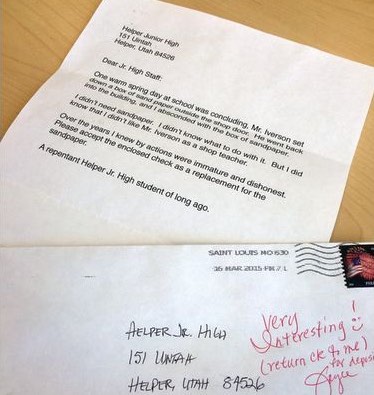 Helper Junior High
151 Uintah
Helper, Utah 84526
Dear Jr. High Staff:
One warm spring day at school was concluding, Mr. Iverson set
down a box of sand paper outside the shop door. He went back
into the building, and I absconded with the box of sandpaper.
I didn't need sandpaper. I didn't know what to do with it. But I did
know that I didn't like Mr. Iverson as a shop teacher.
Over the years I knew by actions were immature and dishonest.
Please accport the enclosed check as a replacement for the
sandpaper.
A repentant Helper Jr. High student of long ago.
SAINT LOUIS MO 630
16 MAR 2015 PM 7 L
HELPER JR. HIGH
151 UINTAH
HELPER, UTAH 84526
Very !
Interesting
(return ck to me)
for deposit
Joyce